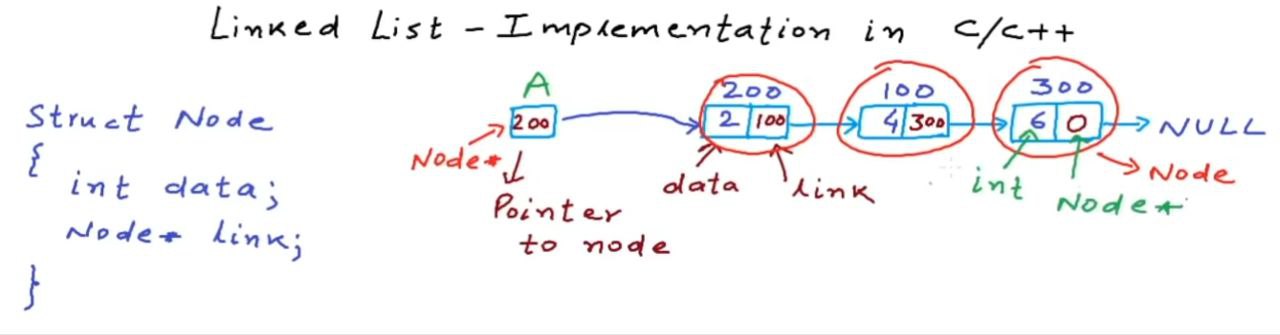 Linked List - Implementation in C/C++
Struct Node
{
int data;
Node* link;
}
A
200
Node*
Pointer
to node
200
2 100
data
link
100
4 300
300
6 0
NULL
int
Node*
Node